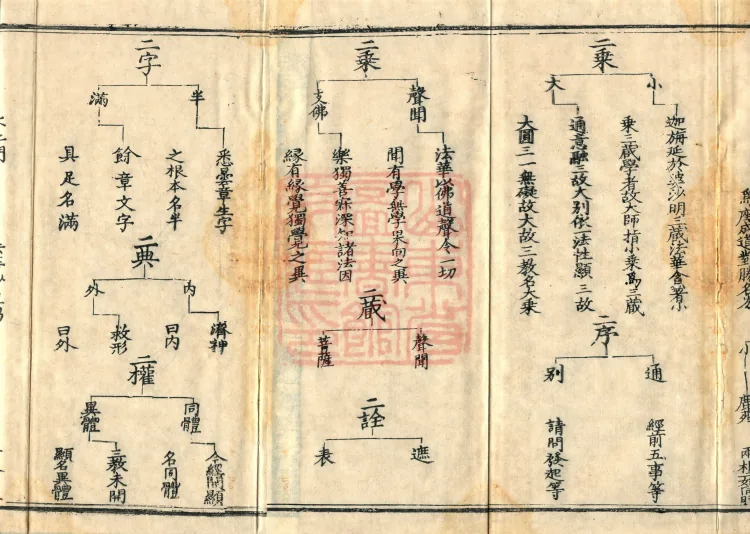 二乘
小
迦旃延於婆沙明三藏法華含著小
乘三藏學者故大師指小乘為三藏
大
通意融三故大別依法性顯三故
大圓三一無礙故大故三教名大乘
二序
通
經前五事等
別
請問發起等
二乘
聲聞
法華以佛道聲令一切
聞有學無學果向之異
支佛
樂獨善寂深知諸法因
緣有緣覺獨覺之異
二藏
聲聞
菩薩
二詮
遮
表
二字
半
悉曇章生字
之根本名半
滿
餘章文字
具足名滿
二典
內
濟神
曰內
外
救形
曰外
二權
同體
今經開顯
名同體
異體
三教未開
顯名異體